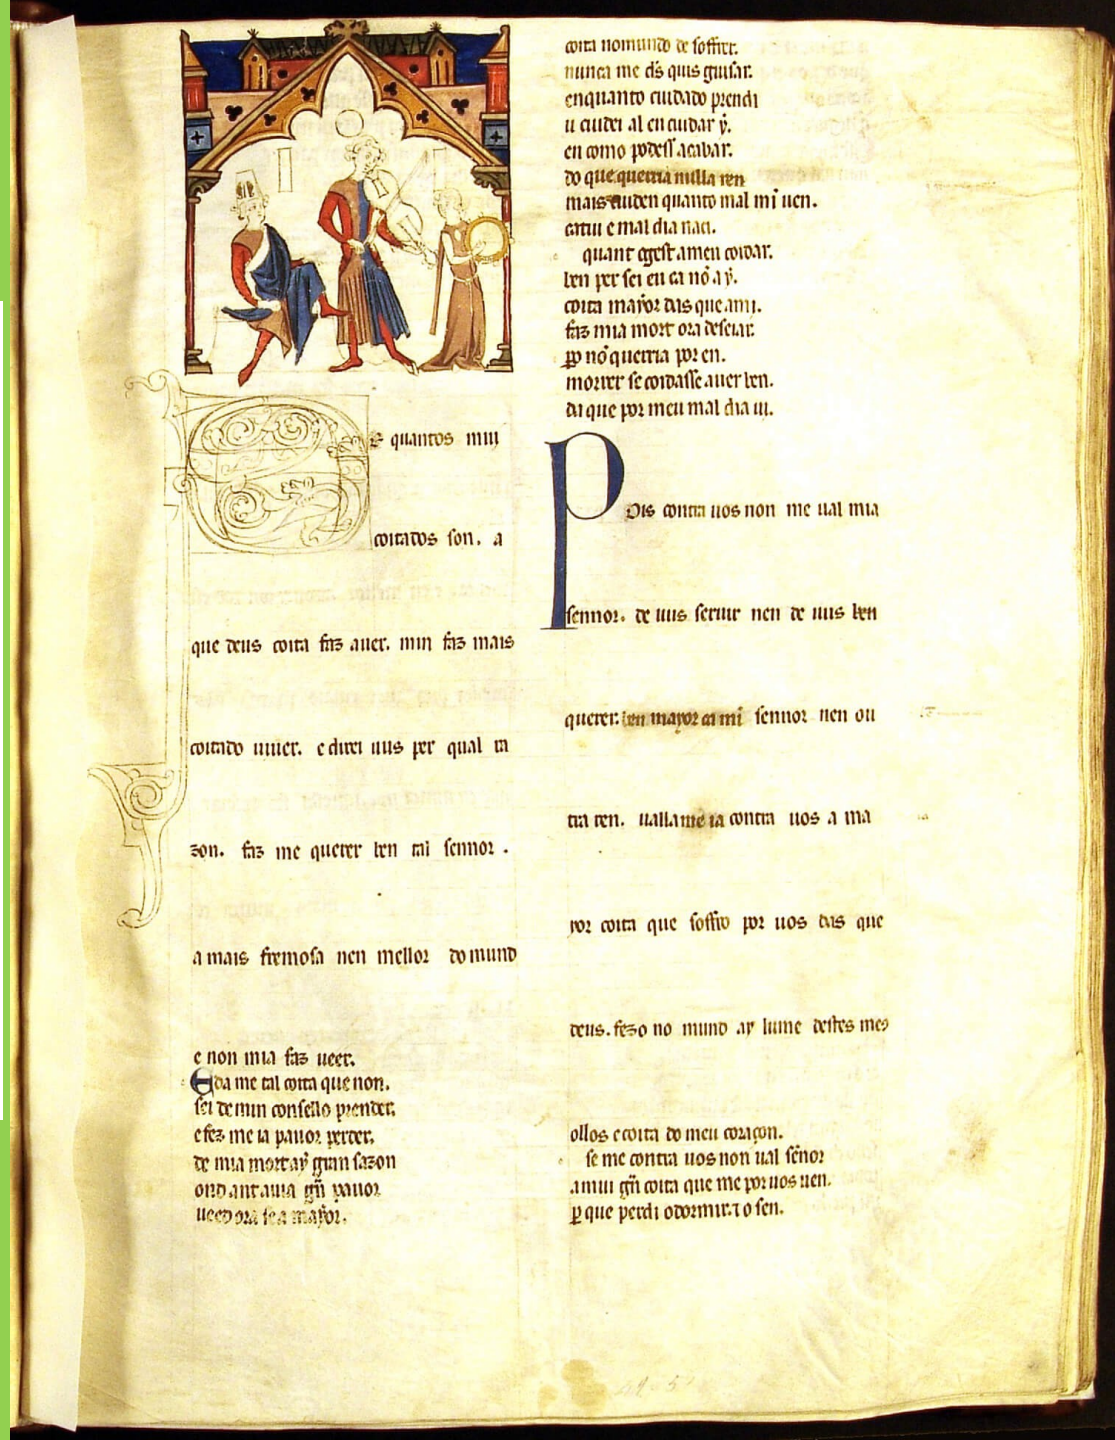 De quantos mui
coitados son. a
que deus coita faz auer. min faz mais
coitado uiuer. e direi uus per qual ra
zon. faz me querer ben tal sennor.
a mais fremosa nen mellor do mund
e non mia faz ueer.
E da me tal coita que non.
sei de min consello prender.
e fez me ia pauor perder.
de mia mort aý gran sazon
ond ant auia gñ pauor
ueed ora se a maýor.
coita no mundo de soffrer.
nunca me d̃s quis guisar.
enquanto cuidado prendi
u cuidei al en cuidar ý.
en como podess acabar.
do que querria nulla ren
mais cuiden quanto mal mi uen.
catiu e mal dia naci.
quant cgest amen coidar.
ben per sei eu ca nõ a ý.
coita maýor das que am i.
faz mia mort ora deseiar.
p̱o nõ querria por en.
morrer se coidasse auer ben.
da que por meu mal dia ui.
Pois contra uos non me ual mia
sennor. de uus seruir nen de uus ben
querer. ben mayor ca mĩ sennor nen ou
tra ren. ualla me ia contra uos a ma
yor coita que soffro por uos das que
deus. fezo no mund ay lume destes meꝯ
ollos e coita do meu coraçon.
se me contra uos non ual sẽnor
a mui gñ coita que me por uos uen.
ꝑ que perdi o dormir. ⁊ o sen.